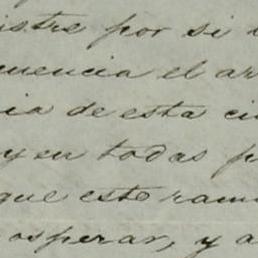 istre por si
uencia el ar
ia de esta ci
y en todas p
que este ram
osperar, y a